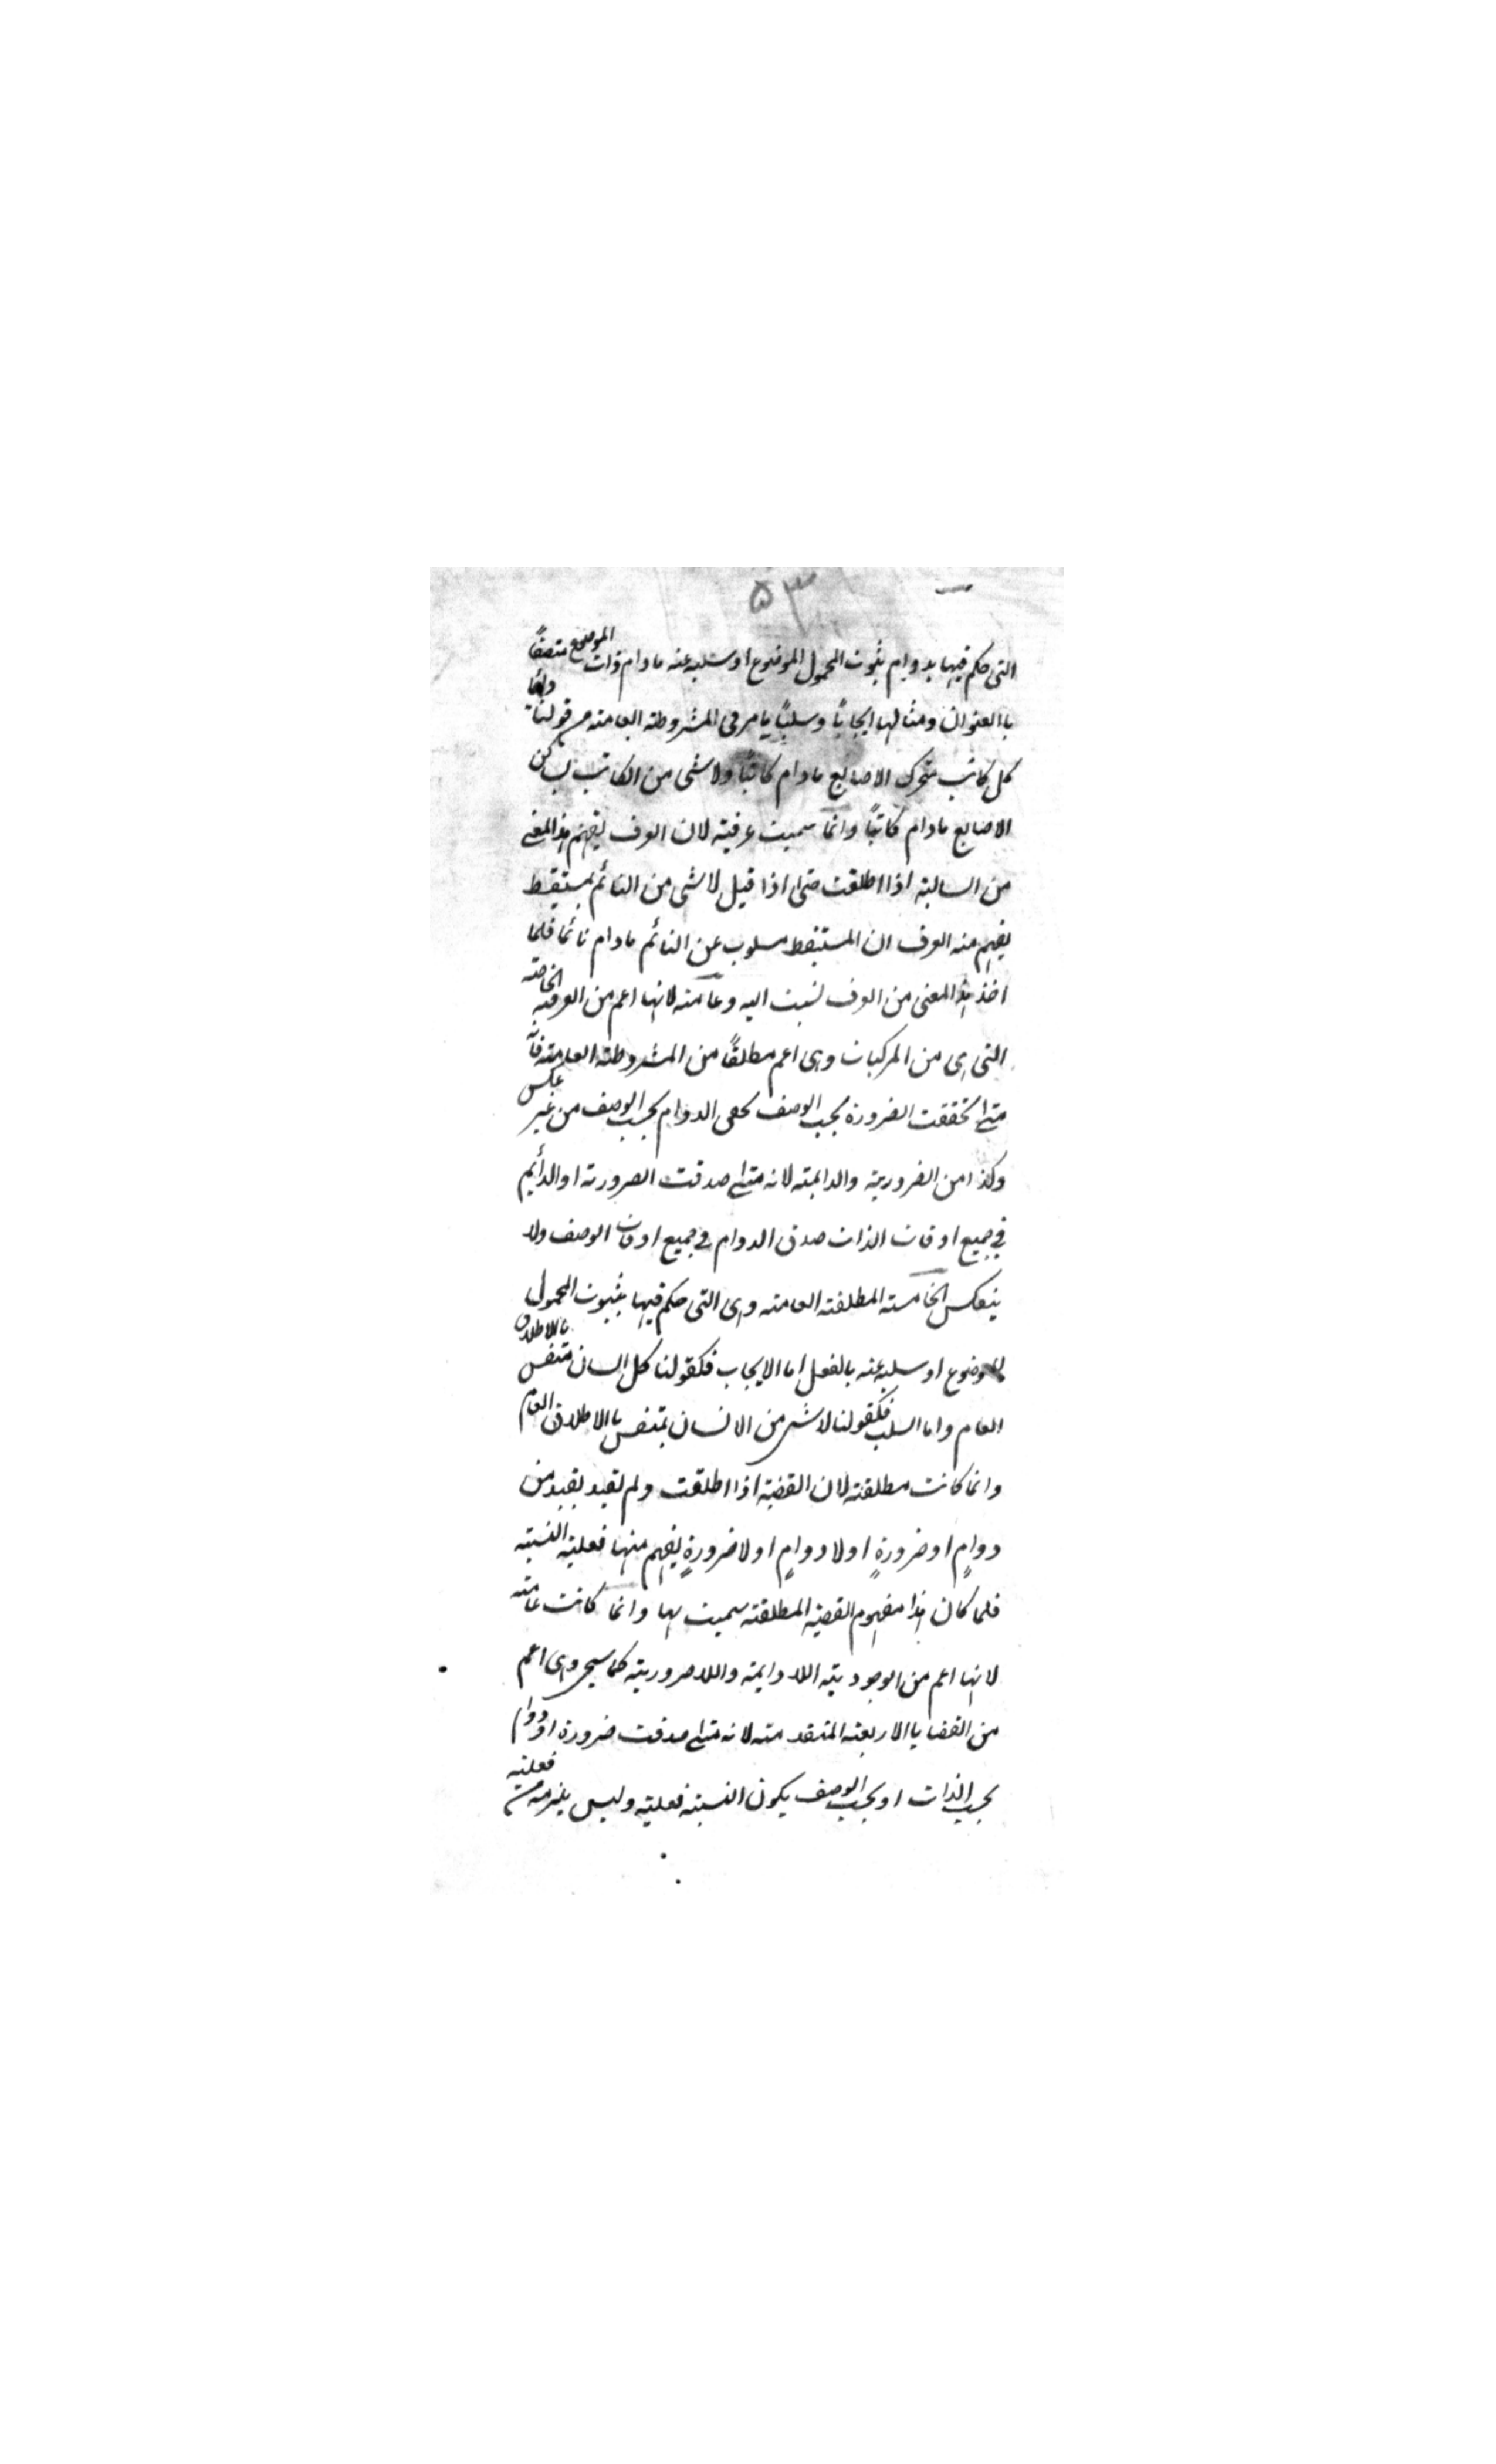 ٥٣
التى حكم فيها بدوام ثبوت المحمول الموضوع او سلبه عنه ما دام ذات الموضوع متصفًا
باالعنوان ومثالها ايجابًا وسلبًا يامر فى المشروطة العامته من قولنا دائما
كل كاتب متحرك الاصابع ما دام كاتبًا ولا شى من الكاتب بساكن
الاصابع ما دام كاتبًا وانما سميت عرفيته لان العرف يفهم هذا المعنے
من السالبته اذا اطلقت حتى اذا قيل لا شى من النائم بمستيقظ
يفهم منه العرف ان المستيقظ مسلوب عن النائم ما دام نائما فلما
اخذ هذا المعنى من العرف نسبت اليه وعامته لانها اعم من العرفيه الخاصته
التى هى من المركبات وهى اعم مطلقًا من المشروطة العامته فانه
متى تحققت الضرورة بحسب الوصف تحقق الدوام بحسب الوصف من غير عكس
وكذا من الضروريته والدايمته لانه متى صدقت الضرورته او الدأيم
فى جميع اوقات الذات صدق الدوام فى جميع اوقات الوصف ولا
ينعكس الخامسته المطلقته العامته وهى التى حكم فيها بثبوت المحمول
للموضوع او سلبه عنه بالفعل اما الايجاب فكقولنا كل انسان متنفس باالاطلاق
العام واما السلب فكقولنا لا شى من الانسان بمتنفس باالاطلاق العام
وانما كانت مطلقته لان القضيته اذا اطلقت ولم تقيد بقيد من
دوامٍ او ضرورةٍ او لا دوامٍ او لا ضرورةٍ يفهم منها فعليته النسبته
فلما كان هذا مفهوم القضيته المطلقته سميت بها وانما كانت عامته
لانها اعم من الوجوديته اللادايمته واللاضروريته كما سيجى وهى اعم
من القضايا الاربعته المتقدمته لانه متى صدقت ضرورة او دوام
بحسب الذات او بحسب الوصف يكون النسبته فعليته وليس يلزم من فعليته